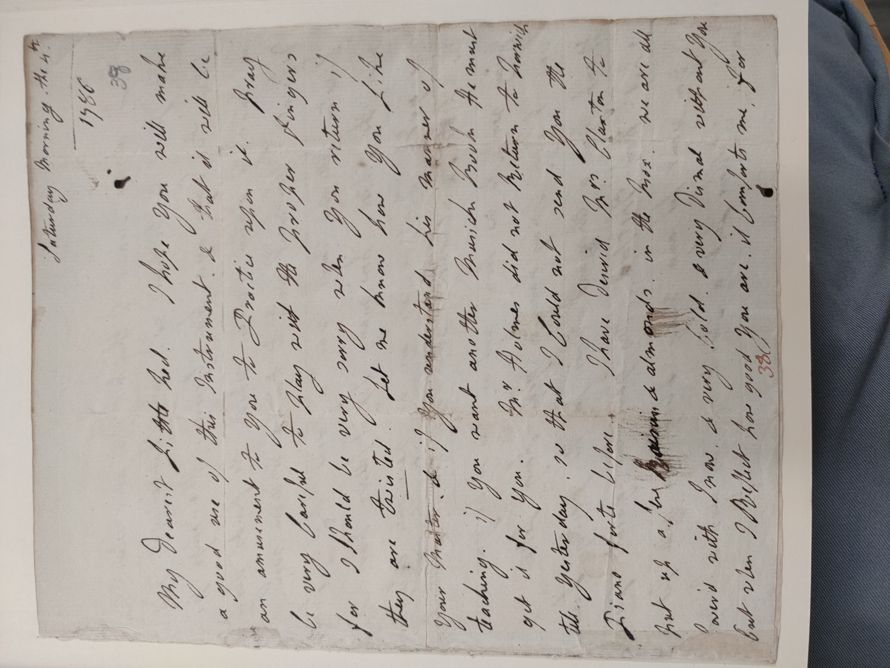 Saturday Morning. the 4th.
1786
38
My Dearest Little Ned. I hope you will make
a good use of this Instrument. & that it will be
an amusement to you to Practice upon it. Pray
be very Carefull to Play with the proper fingers
for I should be very sorry when you return if
they are twisted Let me know how you like
your Master. & if you understand his manner of
teaching. if you want another Musick Book He must
get it for you. Mr Holmes did not Return to Norwich
till yesterday. so that I Could not send you the
Piano forte before. I have Desired Mrs Clarton to
put up a few Raisins & almonds. in the Box. we are all
cover'd with Snow. & very Cold. & very Dismal without you
But when I Reflect how good you are. it Comforts me. for
38